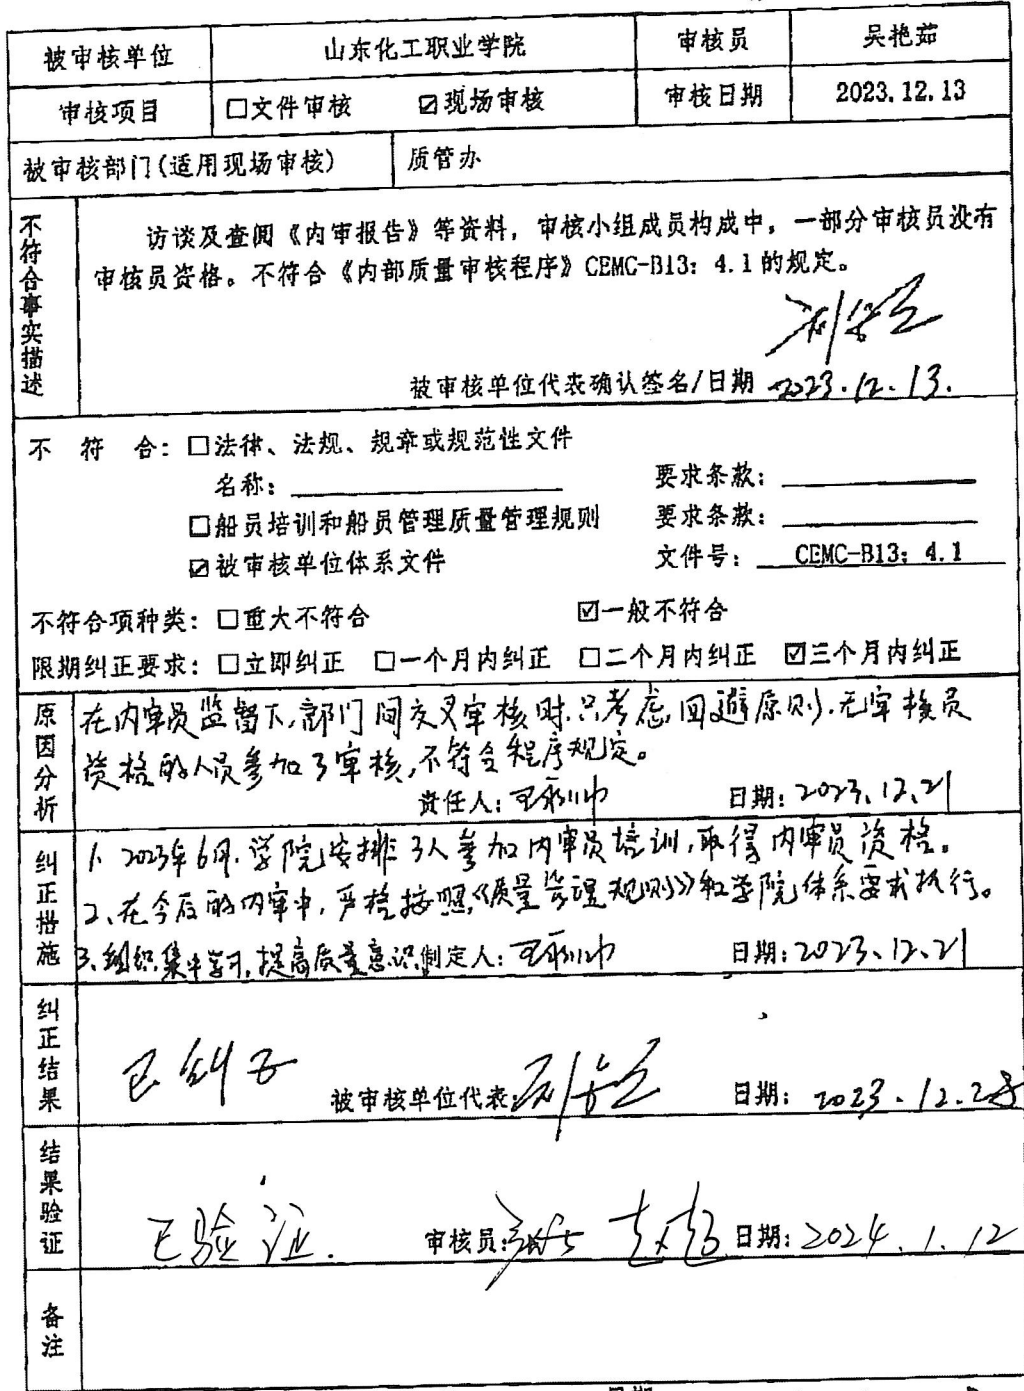 被审核单位 山东化工职业学院 审核员 吴艳茹
审核项目 □文件审核 ☑现场审核 审核日期 2023.12.13
被审核部门(适用现场审核) 质管办
不符合事实描述
访谈及查阅《内审报告》等资料，审核小组成员构成中，一部分审核员没有
审核员资格。不符合《内部质量审核程序》CEMC-B13：4.1的规定。
被审核单位代表确认签名/日期 2023.12.13.
不 符 合：□法律、法规、规章或规范性文件
名称：　要求条款：
□船员培训和船员管理质量管理规则 要求条款：
☑被审核单位体系文件 文件号： CEMC-B13：4.1
不符合项种类：□重大不符合 ☑一般不符合
限期纠正要求：□立即纠正 □一个月内纠正 □二个月内纠正 ☑三个月内纠正
原因分析
在内审员监督下,部门间交叉审核时,只考虑回避原则,无审核员
资格的人员参加了审核,不符合程序规定。
责任人： 日期：2023.12.21
纠正措施
1. 2023年6月,学院安排3人参加内审员培训,取得内审员资格。
2、在今后的内审中,严格按照《质量管理规则》和学院体系要求执行。
3、组织集中学习,提高质量意识 制定人： 日期：2023.12.21
纠正结果
已纠正
被审核单位代表： 日期： 2023.12.2
结果验证
已验证. 审核员： 日期：2024.1.12
备注